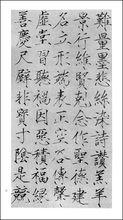 難量墨悲絲染詩讚羔羊
景行維賢克念作聖德建
名立形端表正空谷傳聲
虛堂習聽禍因惡積福緣
善慶尺璧非寶寸陰是競